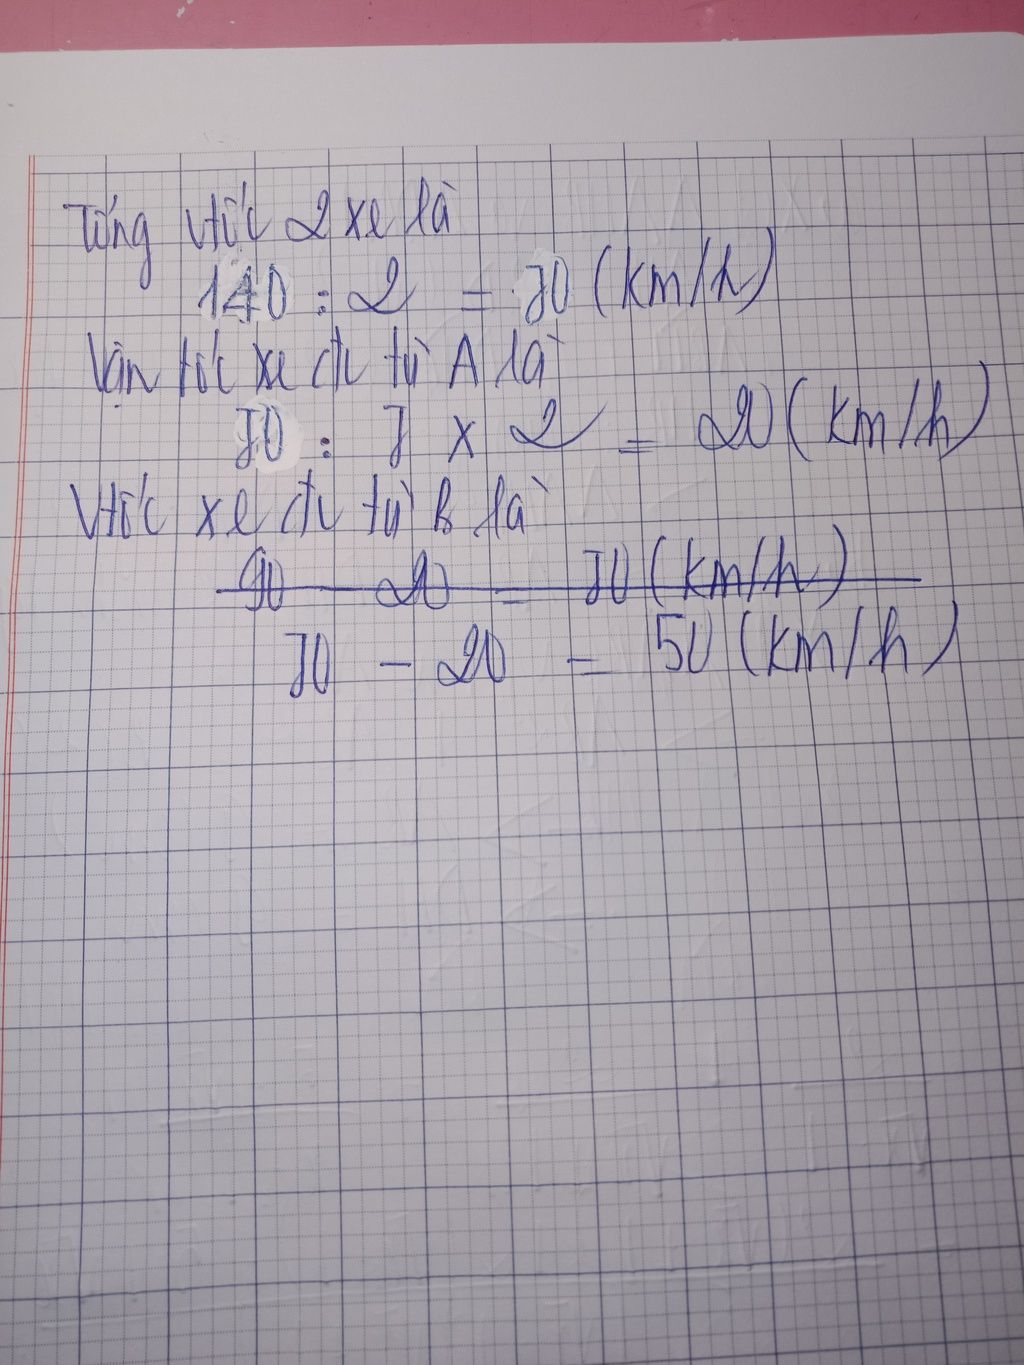 Tổng vtốc 2 xe là
140 : 2 = 70 (km/h)
Vận tốc xe đi từ A là
70 : 7 x 2 = 20 (km/h)
Vtốc xe đi từ B là
90 - 20 = 70 (km/h)
70 - 20 = 50 (km/h)